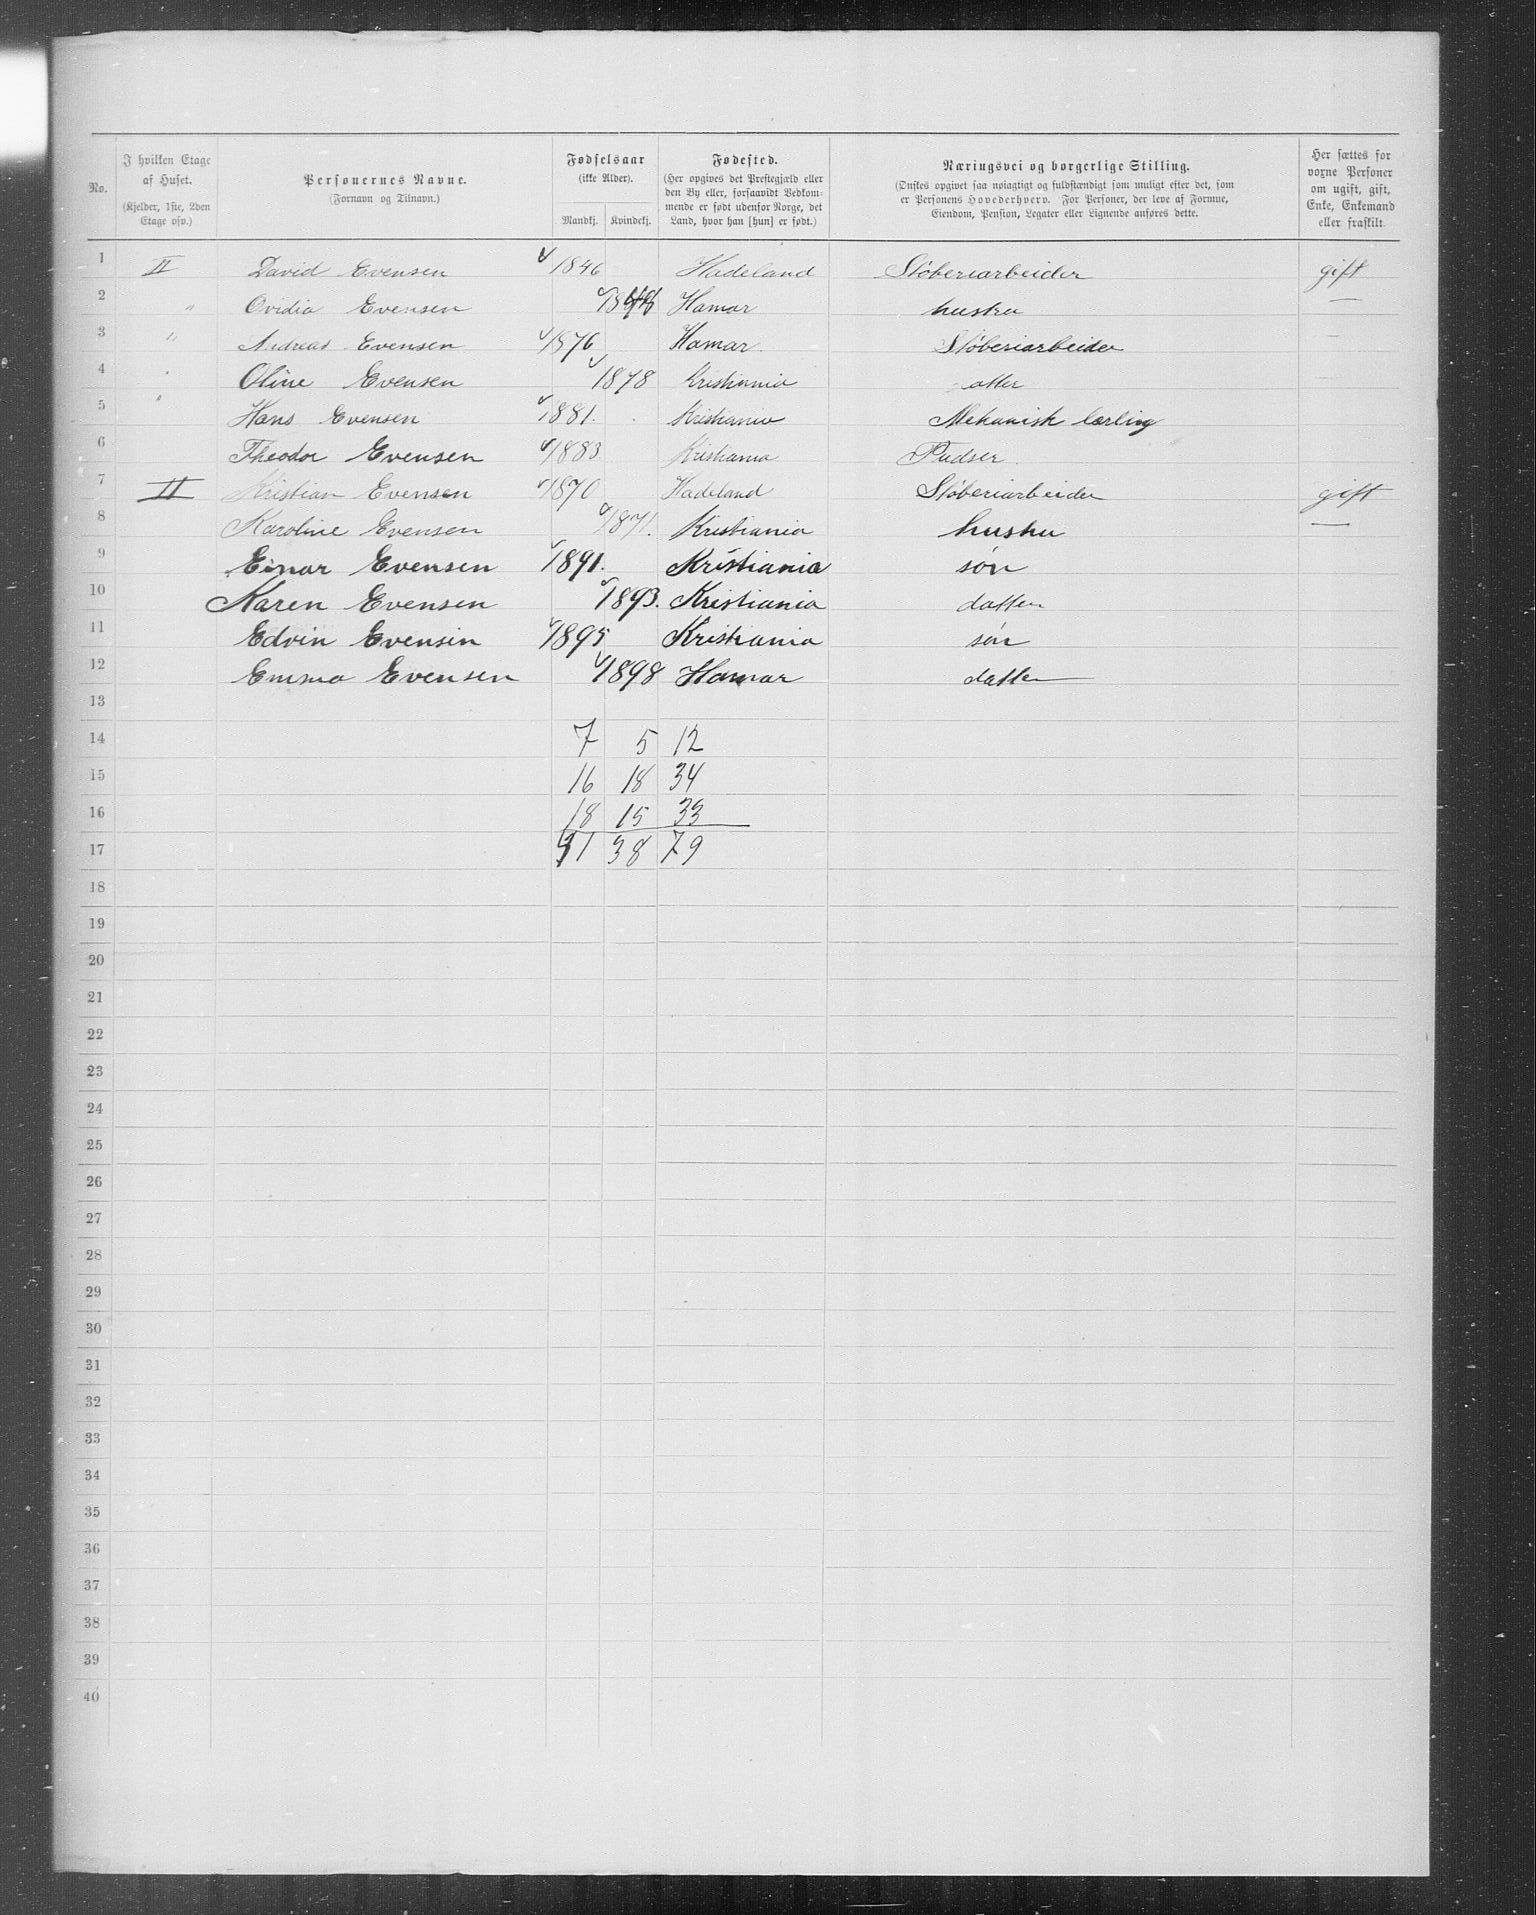 No. | I hvilken Etage af Huset. (Kjelder, 1ste, 2den Etage osv.) | Personernes Navne. (Fornavn og Tilnavn.) | Fødselsaar (ikke Alder). Mandkj. | Kvindekj. | Fødested. (Her opgives det Prestegjæld eller den By eller, forsaavidt Vedkommende er født udenfor Norge, det Land, hvor han [hun] er født.) | Næringsvei og borgerlige Stilling. (Ønskes opgivet saa nøiagtigt og fuldstændigt som muligt efter det, som er Personens Hovederhverv. For Personer, der leve af Formue, Eiendom, Pension, Legater eller Lignende anføres dette. | Her sættes for voxne Personer om ugift, gift, Enke, Enkemand eller fraskilt.
1 II David Evensen 1846 Hadeland Støberiarbeider gift
2 " Ovidia Evensen Hamar hustru —
3 " Andreas Evensen 1876 Hamar. Støberiarbeider —
4 " Oline Evensen 1878 Kristiania
5 " Hans Evensen 1881. Kristiania Mekanisk lærling
6 Theodor Evensen 1883 Kristiania Pudser.
7 II Kristian Evensen 1870 Hadeland Støberiarbeider gift
8 Karoline Evensen 1871. Kristiania hustru —
9 Einar Evensen 1891. Kristiania søn
10 Karen Evensen 1893. Kristiania datter
11 Edvin Evensen 1895 Kristiania søn
12 Emma Evensen 1898 Hamar datter
13
14 7 5 12
15 16 18 34
16 18 15 33
17 41 38 79
18
19
20
21
22
23
24
25
26
27
28
29
30
31
32
33
34
35
36
37
38
39
40